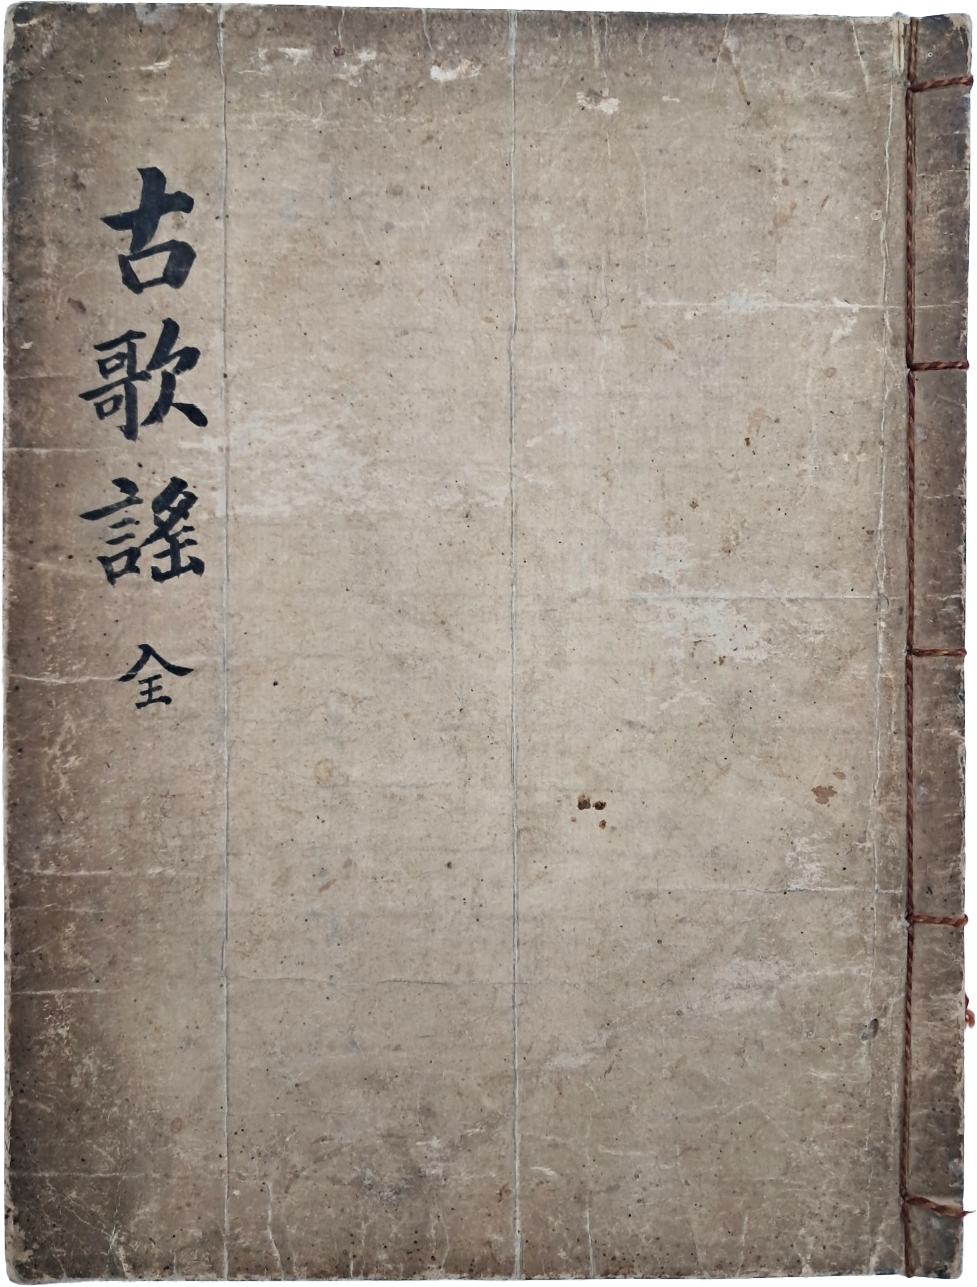 古歌謠 全